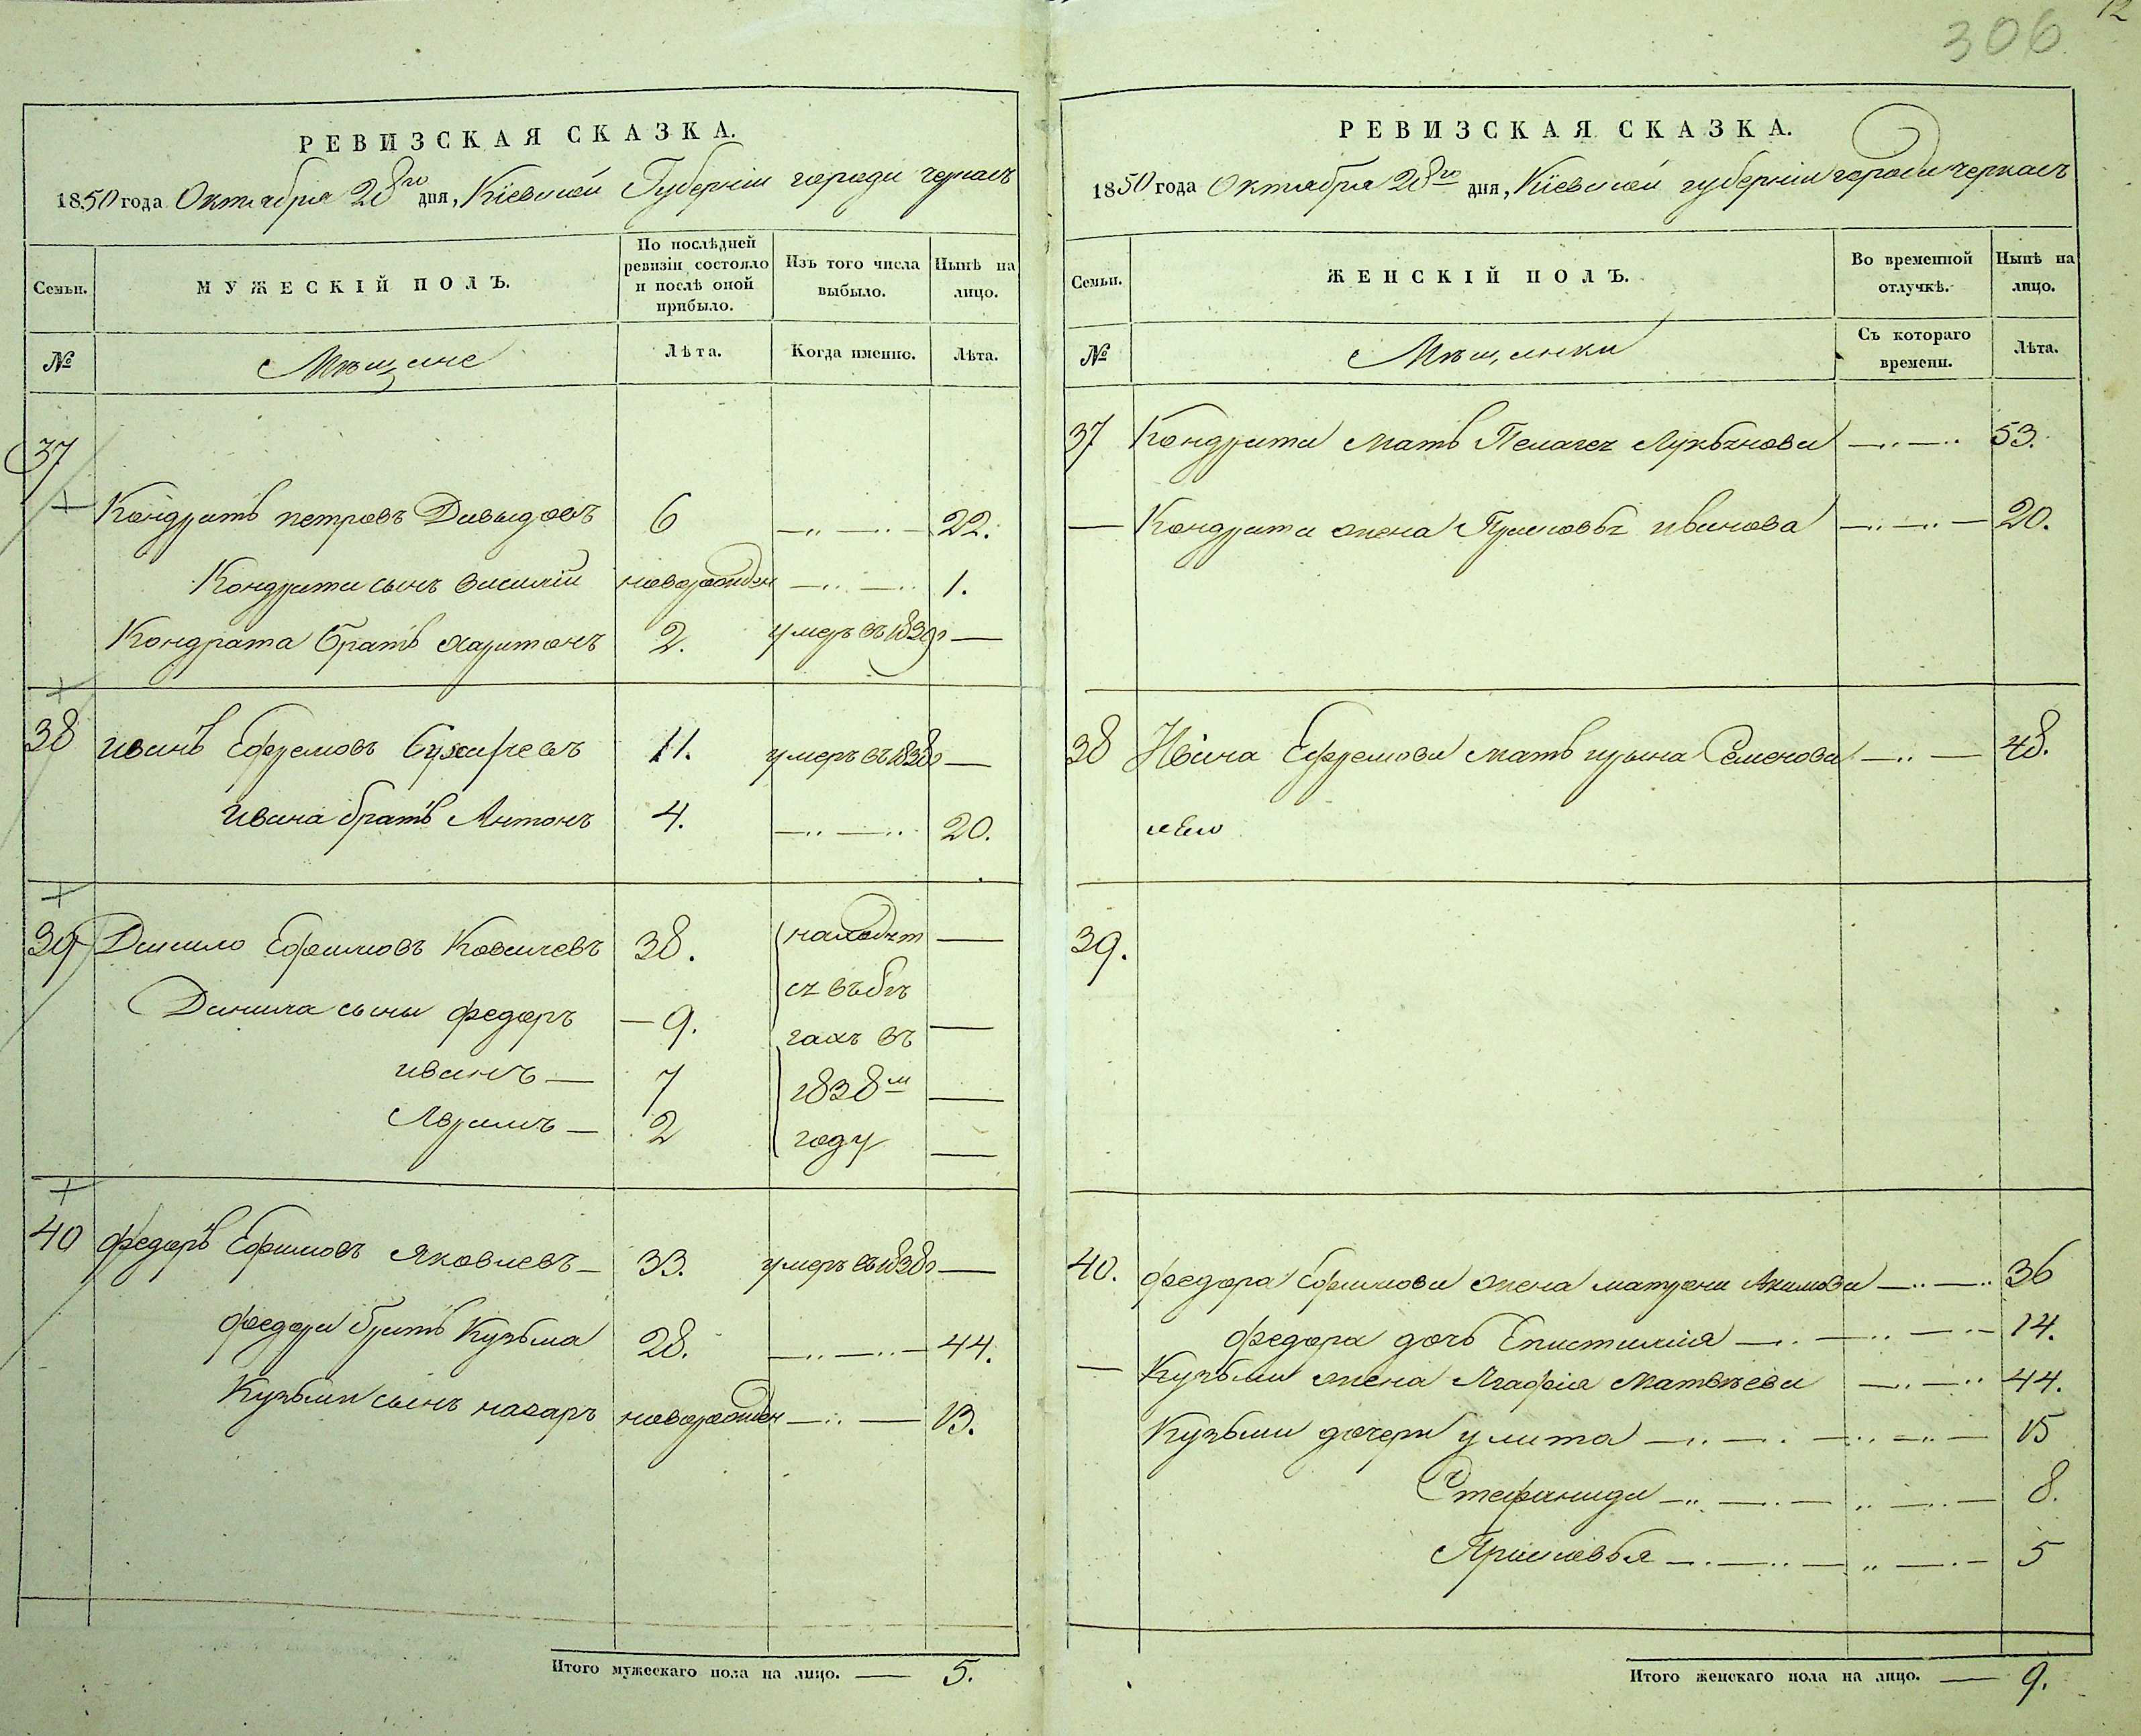 306
12
РЕВИЗСКАЯ СКАЗКА.
1850 года Октября 28го дня, Кіевской Губерніи города черкасъ
Семьи.
МУЖЕСКІЙ ПОЛЪ.
По послѣдней ревизіи состояло и послѣ оной прибыло.
Изъ того числа выбыло.
Нынѣ на лицо.
№
Мѣщане
Лѣта.
Когда именно.
Лѣта.
37
Кондратъ петровъ Давыдовъ 6 22.
Кондрата сынъ василій новорожден 1.
Кондрата братъ харитонъ 2. умеръ въ 1839 —
38 иванъ Ефремовъ 11. умеръ въ 1838 —
ивана братъ Антонъ 4. 20.
39 Данило Ефимовъ Ковалевъ 38. находит —
ся въ бѣ
Данила сыны федоръ — 9. гахъ въ —
иванъ — 7 1838м —
Абрамъ — 2 году —
40 федоръ Ефимовъ Яковлевъ — 33. умеръ въ 1838 —
федора братъ Кузьма 28. 44.
Кузьми сынъ назаръ новорожден 13.
Итого мужескаго пола на лицо. — 5.
РЕВИЗСКАЯ СКАЗКА.
1850 года Октября 28го дня, Кіевской губерніи города черкасъ
Семьи.
ЖЕНСКІЙ ПОЛЪ.
Во временной отлучкѣ.
Нынѣ на лицо.
№
Мѣщанки
Съ котораго времени.
Лѣта.
37 Кондрата мать Пелагея Лукьянова 53.
— Кондрата жена Прасковья иванова 20.
38 Ивана Ефремова мать ирина Семенова 48.
39.
40. федора Ефимова жена матрона Акимова 36
федора дочь Епистимія 14.
— Кузьми жена Агафія Матвѣева 44.
Кузьми дочери улита 15
Стефанида 8.
Прасковья 5
Итого женскаго пола на лицо. — 9.